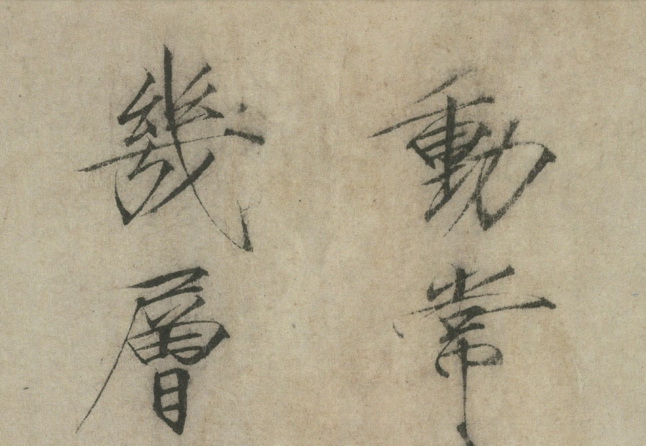 動常
幾層